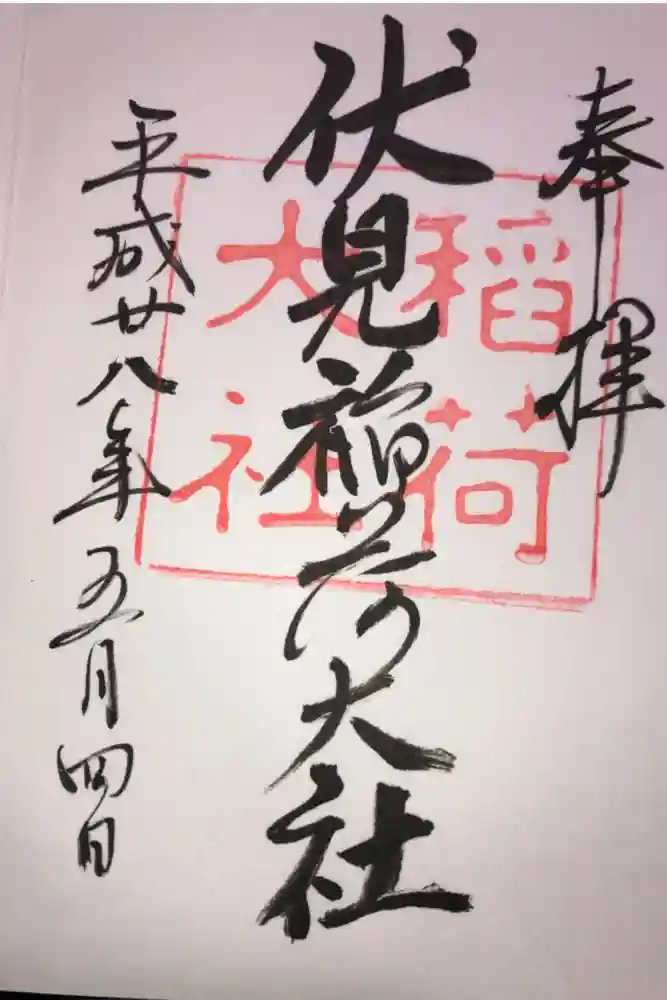 奉拝
伏見稲荷大社
平成廿八年五月四日
稲荷
大社